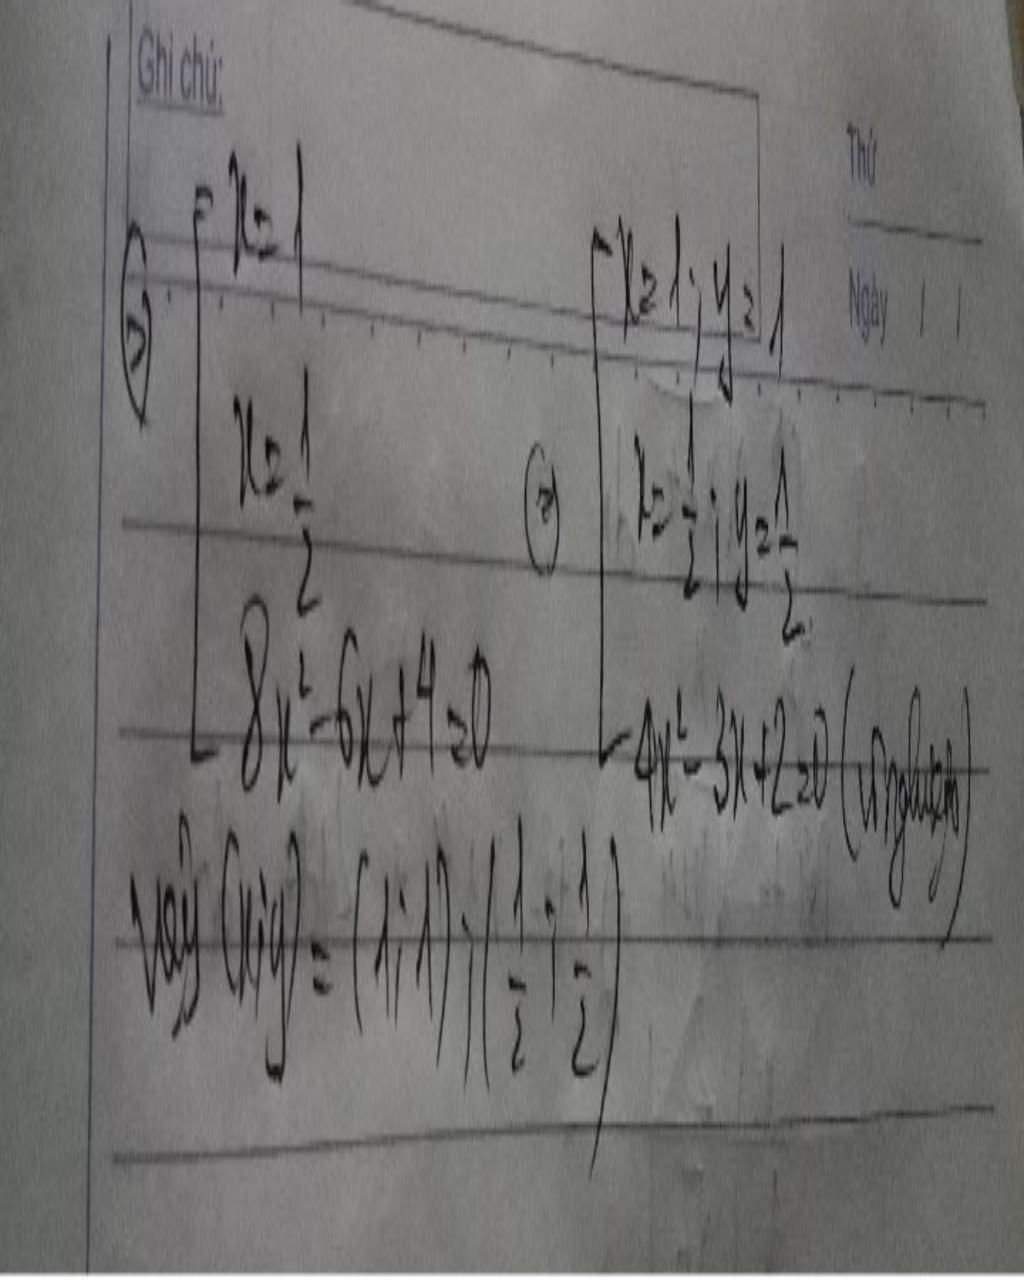 Ghi chú:
Thứ
Ngày
⇔ [ x = 1
x = 1/2
8x² - 6x + 4 = 0
⇔ [ x = 1; y = 1
x = 1/2; y = 1/2
4x² - 3x + 2 = 0 (vô nghiệm)
Vậy (x; y) = (1; 1); (1/2; 1/2)